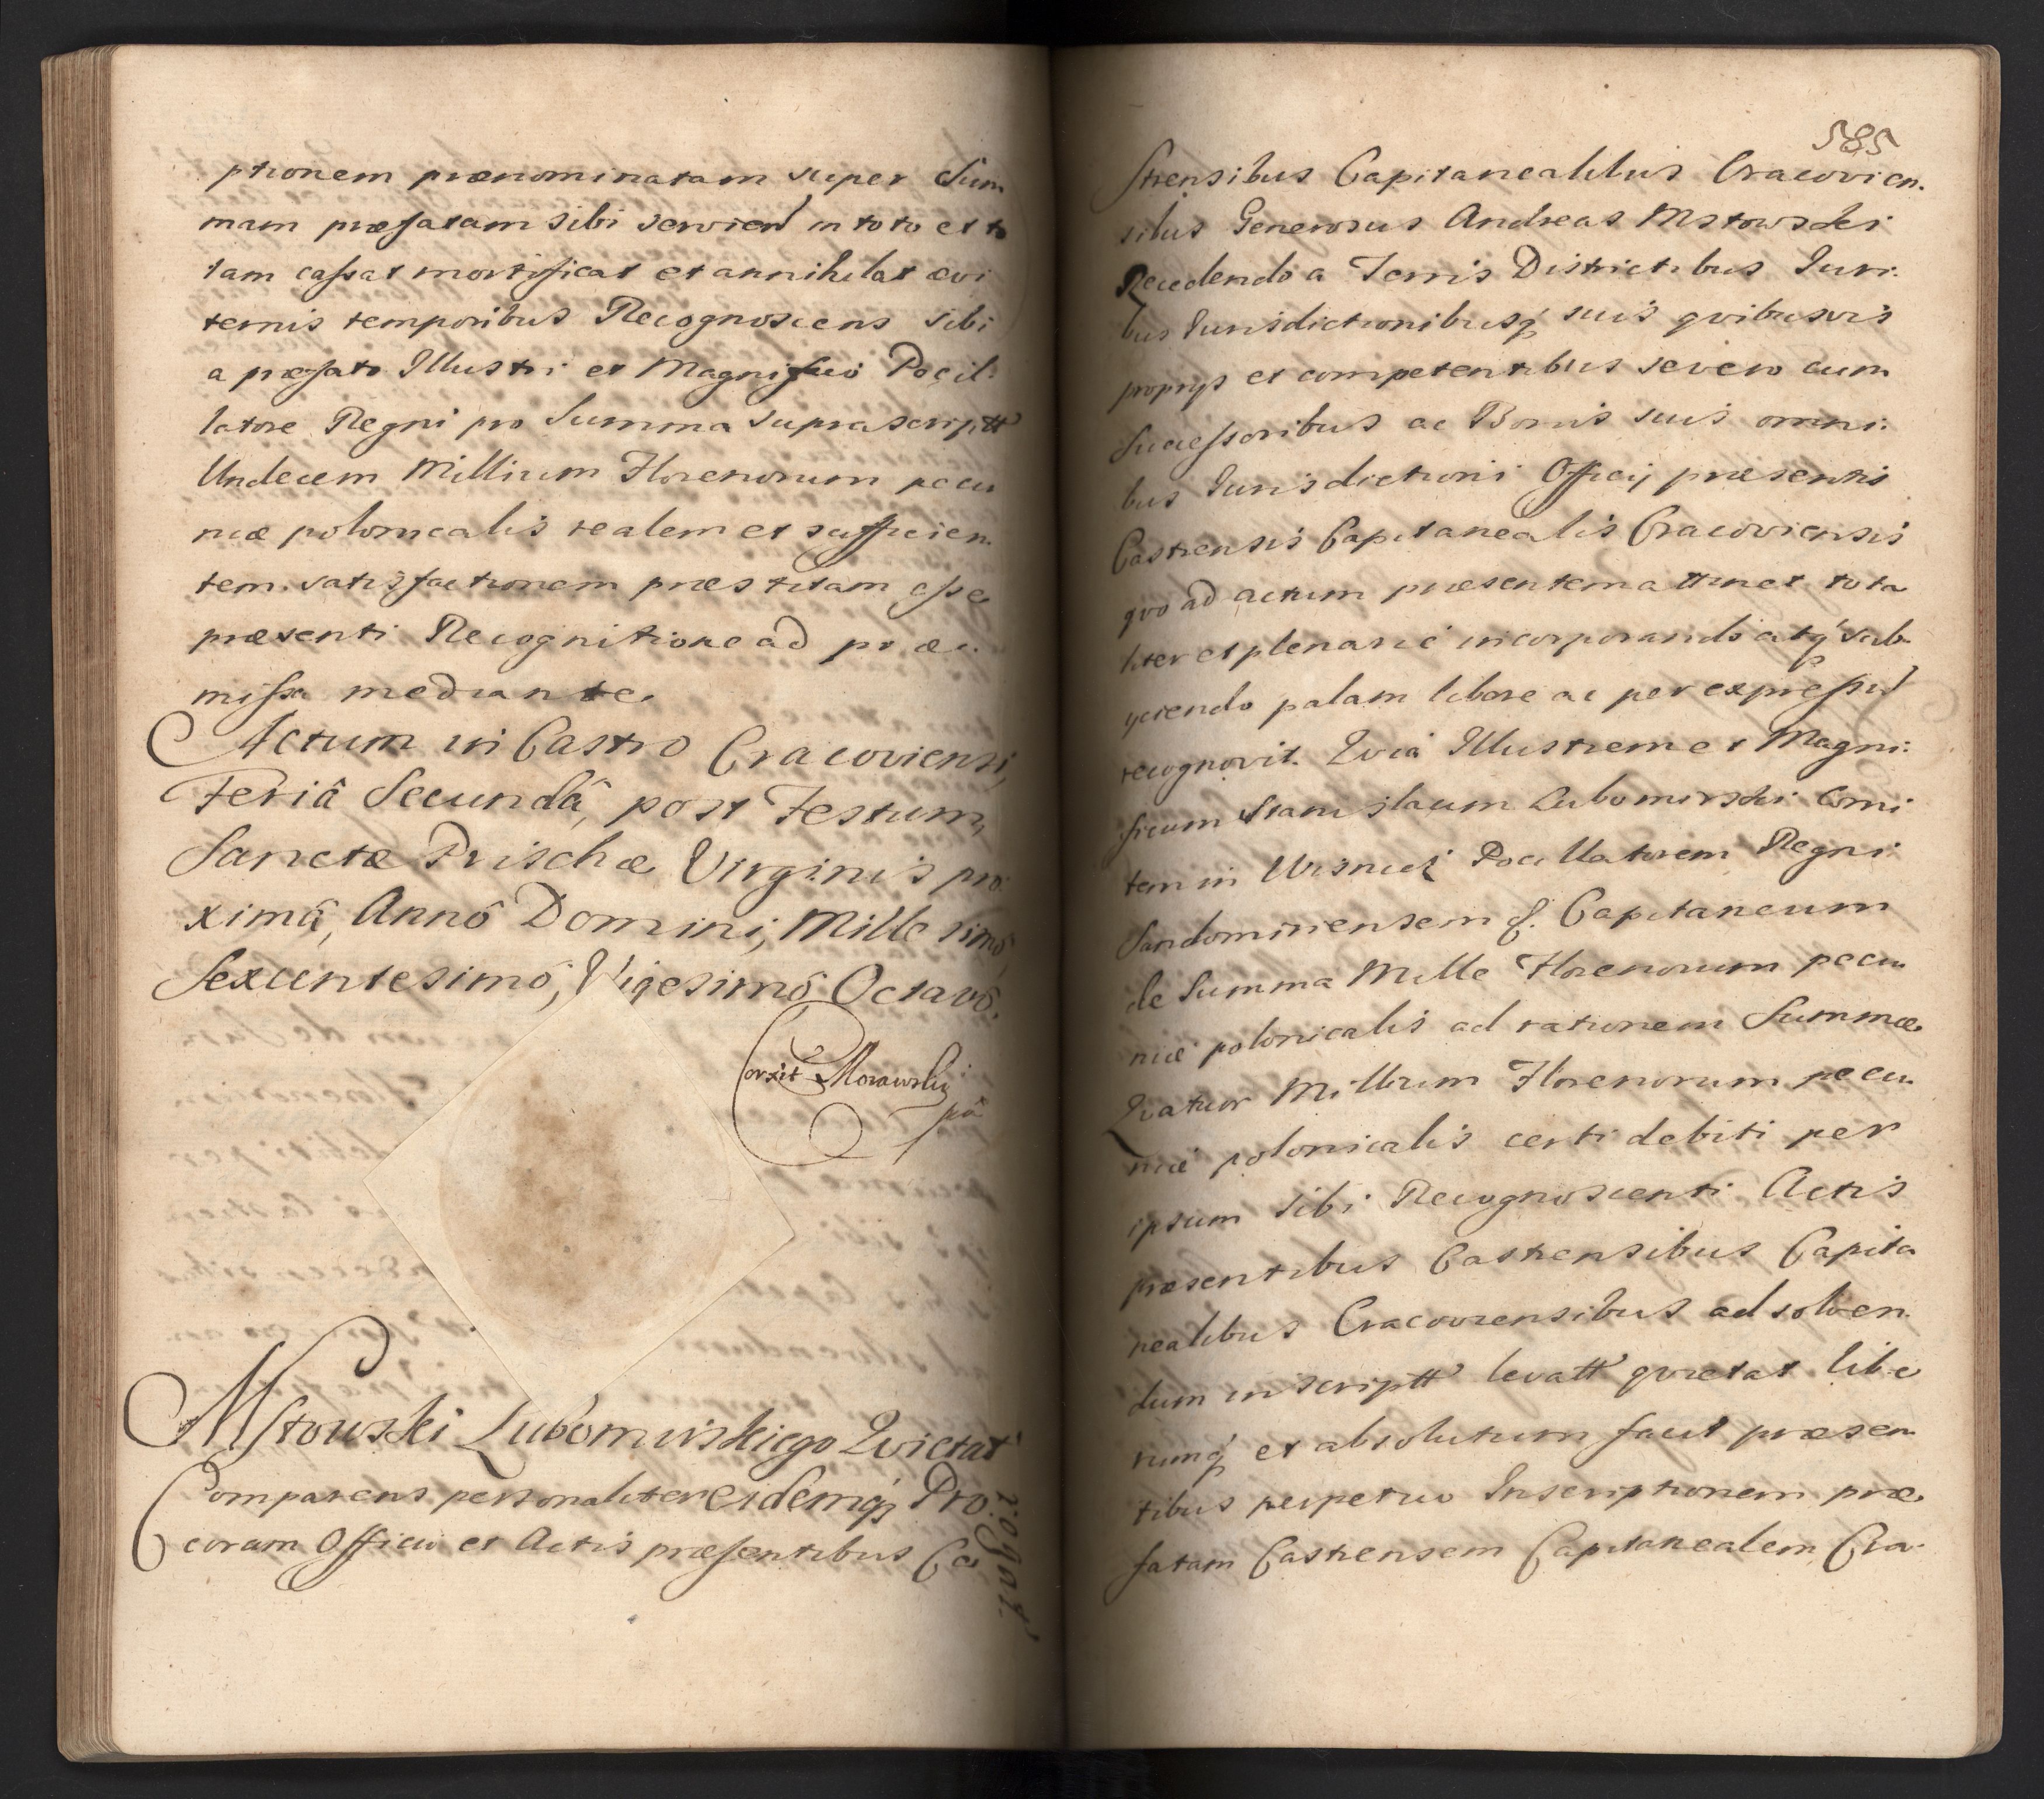 ptionem prænominatam super Sum
mam præfatam sibi servien in toto et to
tam cassat mortificat et annihilat ævi
ternis temporibus Recognoscens sibi
a præfato Illustri et Magnifico Pocil:
latore Regni pro Summa suprascriptt
Undecem Millium Florenorum pecu
niæ polonicalis realem et sufficien.
tem satisfactionem præstitam esse
præsenti Recognitione ad præ
missa mediante.
Actum in Castro Cracoviensi,
Feriâ Secundâ, post Festum,
Sanctæ Prischæ Virginis pro:
ximâ, Annô Domini, Millesimô
Sexcentesimô, Vigesimô Octavô.
Corxit Morawski
pâ
Mstowski Lubomirskiego Qvietat
Comparens personaliter eidemq Pro:
rogat.
coram Officio et Actis præsentibus Ca
585
strensibus Capitanealibus Cracovien.
sibus Generosus Andreas Mstowski
Recedendo a Terris Districtibus Juri.
bus Jurisdictionibusq suis qvibusvis
proprys et competentibus seвero cum
Successoribus ac Bonis suis omni:
bus Jurisdictioni Officij præsentis
Castrensis Capitanealis Cracoviensis
qvo ad actum præsentem attinet tota
liter et plenarie incorporando atq sub
yciendo palam libere ac per expressum
recognovit. Qvia Illustrem et Magni:
ficum Stanislaum Lubomirski Comi
tem in Wisnicz Pocillatorem Regni
Sandomiriensem &. Capitaneum
de Summa Mille Florenorum pecu
niæ polonicalis ad rationem Summæ
Qvatuor Millium Florenorum pecu.
niæ polonicalis certi debiti per
ipsum sibi Recognoscenti Actis
præsentibus Castrensibus Capita
nealibus Cracoviensibus ad solven.
dum inscriptt levatt qvietat libe
rumq et absolutum facit præsen
tibus perpetuo Inscriptionem præ
fatam Castrensem Capitanealem Cra.